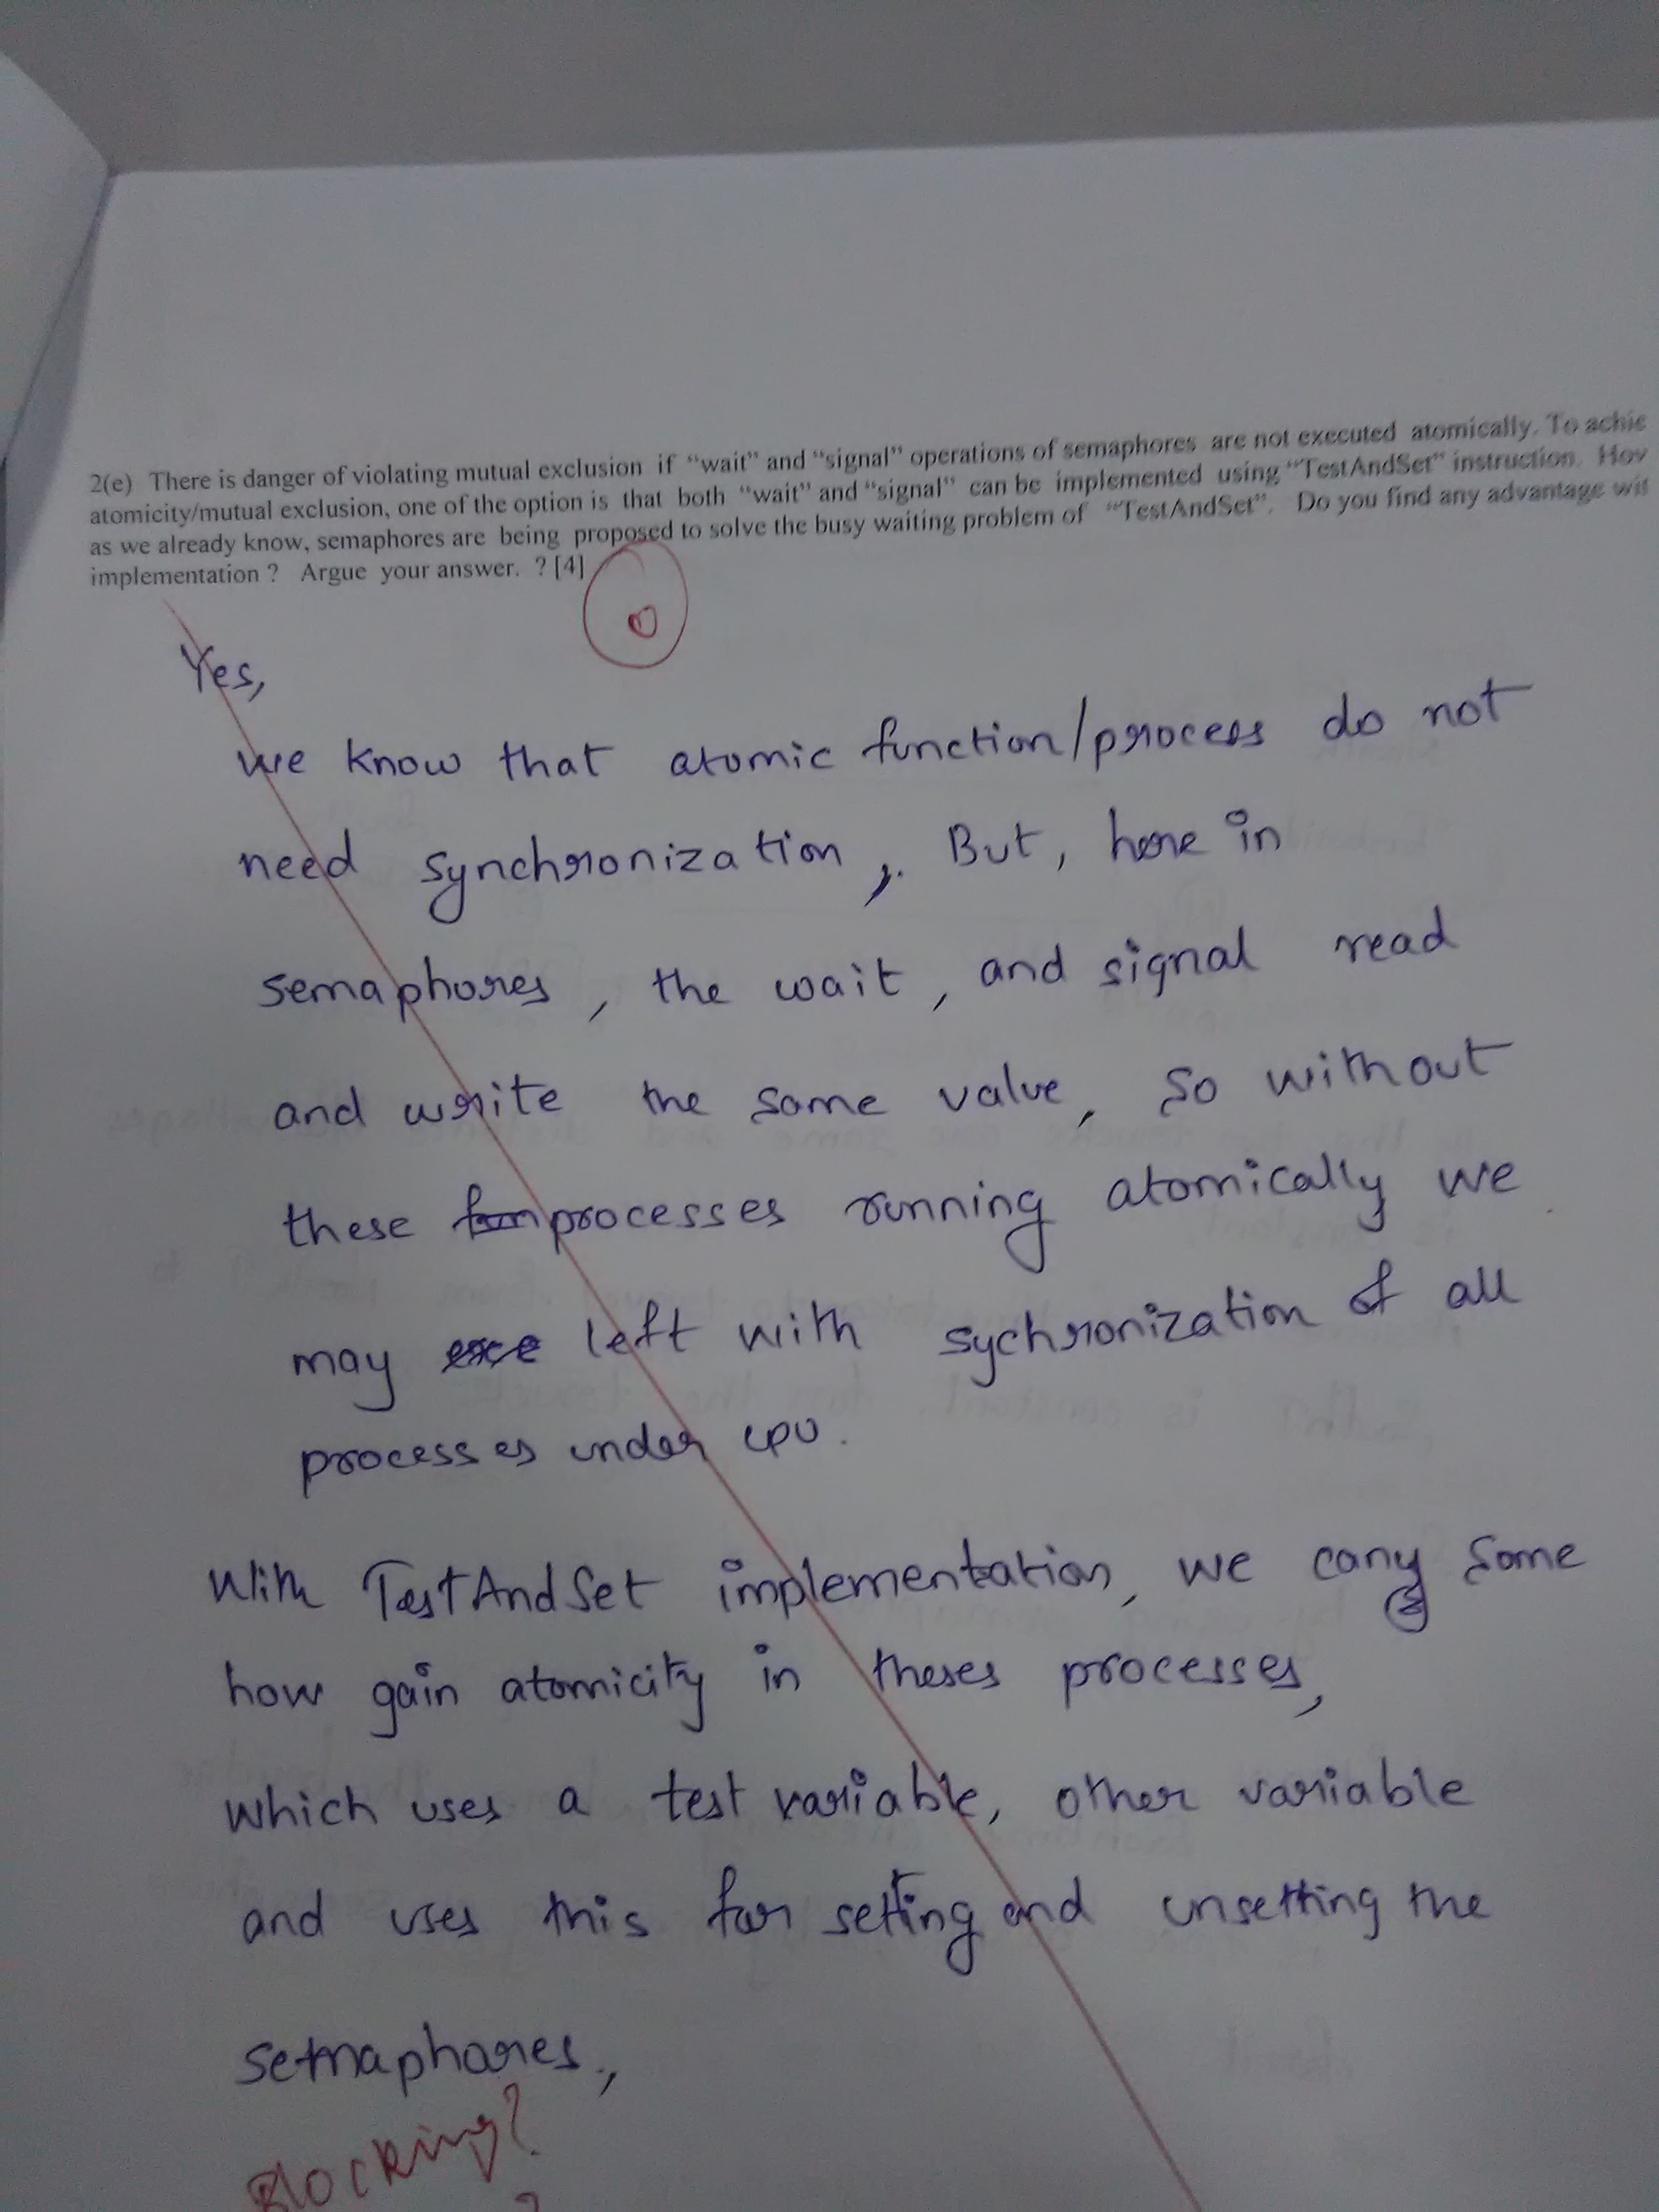 2(e) There is danger of violating mutual exclusion if "wait" and "signal" operations of semaphores are not executed atomically. To achie
atomicity/mutual exclusion, one of the option is that both "wait" and "signal" can be implemented using "TestAndSet" instruction. Hov
as we already know, semaphores are being proposed to solve the busy waiting problem of "TestAndSet". Do you find any advantage wit
implementation ? Argue your answer. ? [4]
0
Yes,
we know that atomic function/process do not
need synchronization, But, here in
semaphores, the wait, and signal read
and write the same value, So without
these processes running atomically we
may left with sychronization of all
processes under cpu.
With TestAndSet implementation, we can some
how gain atomicity in theses processes,
which uses a test variable, other variable
and uses this for setting and unsetting the
semaphores,
Blocking?
?